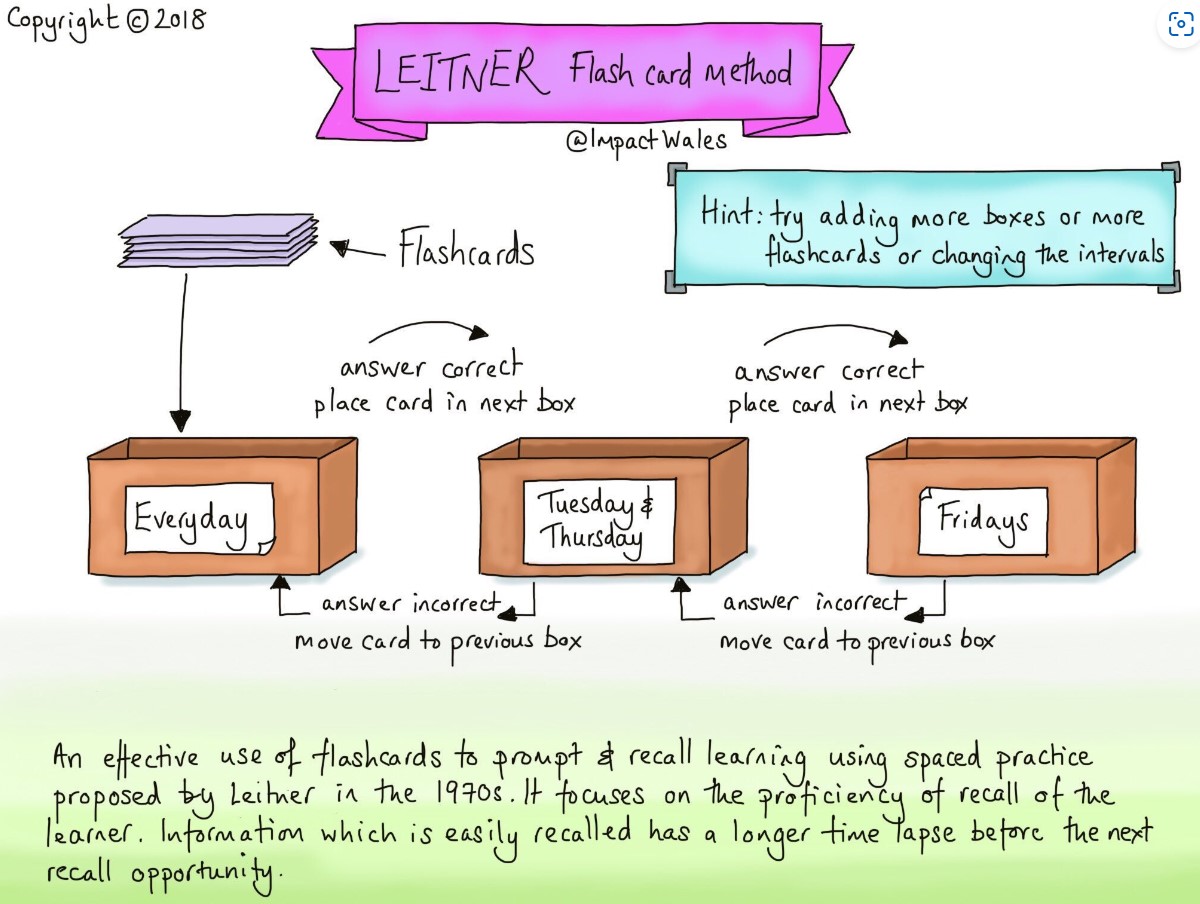 Copyright © 2018
LEITNER Flash card method
@ImpactWales
Hint: try adding more boxes or more
flashcards or changing the intervals
Flashcards
answer correct
place card in next box
answer correct
place card in next box
Everyday
Tuesday &
Thursday
Fridays
answer incorrect
move card to previous box
answer incorrect
move card to previous box
An effective use of flashcards to prompt & recall learning using spaced practice
proposed by Leitner in the 1970s. It focuses on the proficiency of recall of the
learner. Information which is easily recalled has a longer time lapse before the next
recall opportunity.